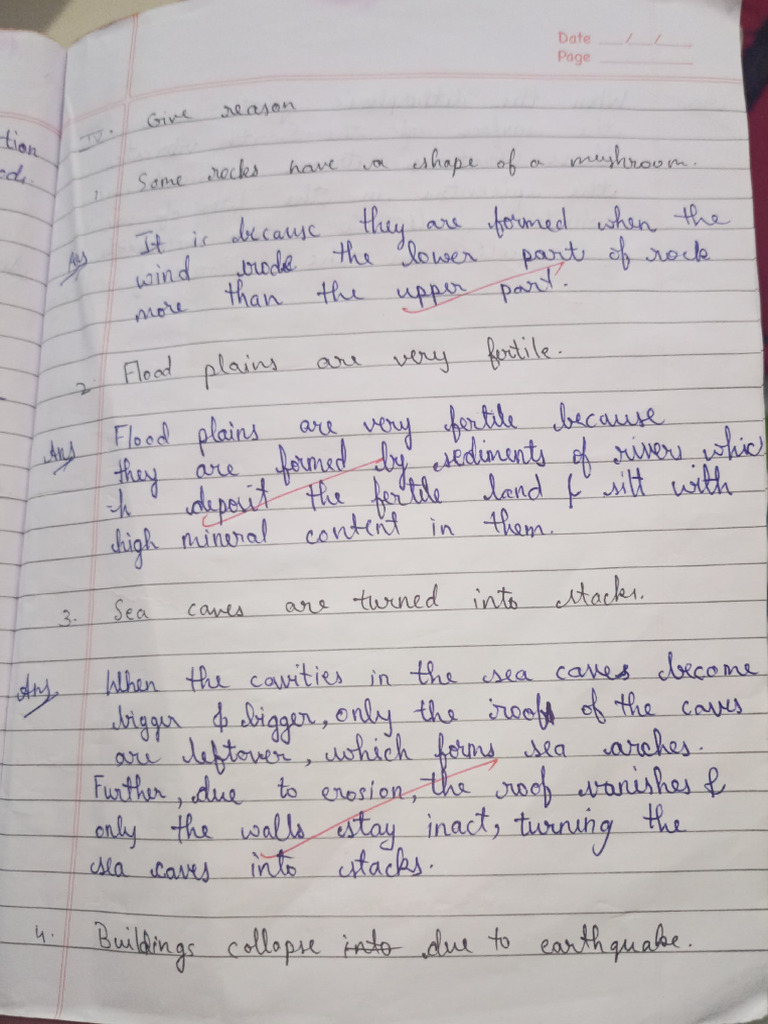 Date __/__/__
Page
tion
IV. Give reason
1. Some rocks have a shape of a mushroom.
Ans It is because they are formed when the
wind erode the lower part of rock
more than the upper part.
2. Flood plains are very fertile.
Ans Flood plains are very fertile because
they are formed by sediments of rivers whic
-h deposit the fertile land & silt with
high mineral content in them.
3. Sea caves are turned into stacks.
Ans When the cavities in the sea caves become
bigger & bigger, only the roof of the caves
are leftover, which forms sea arches.
Further, due to erosion, the roof vanishes &
only the walls stay inact, turning the
sea caves into stacks.
4. Buildings collapse into due to earthquake.